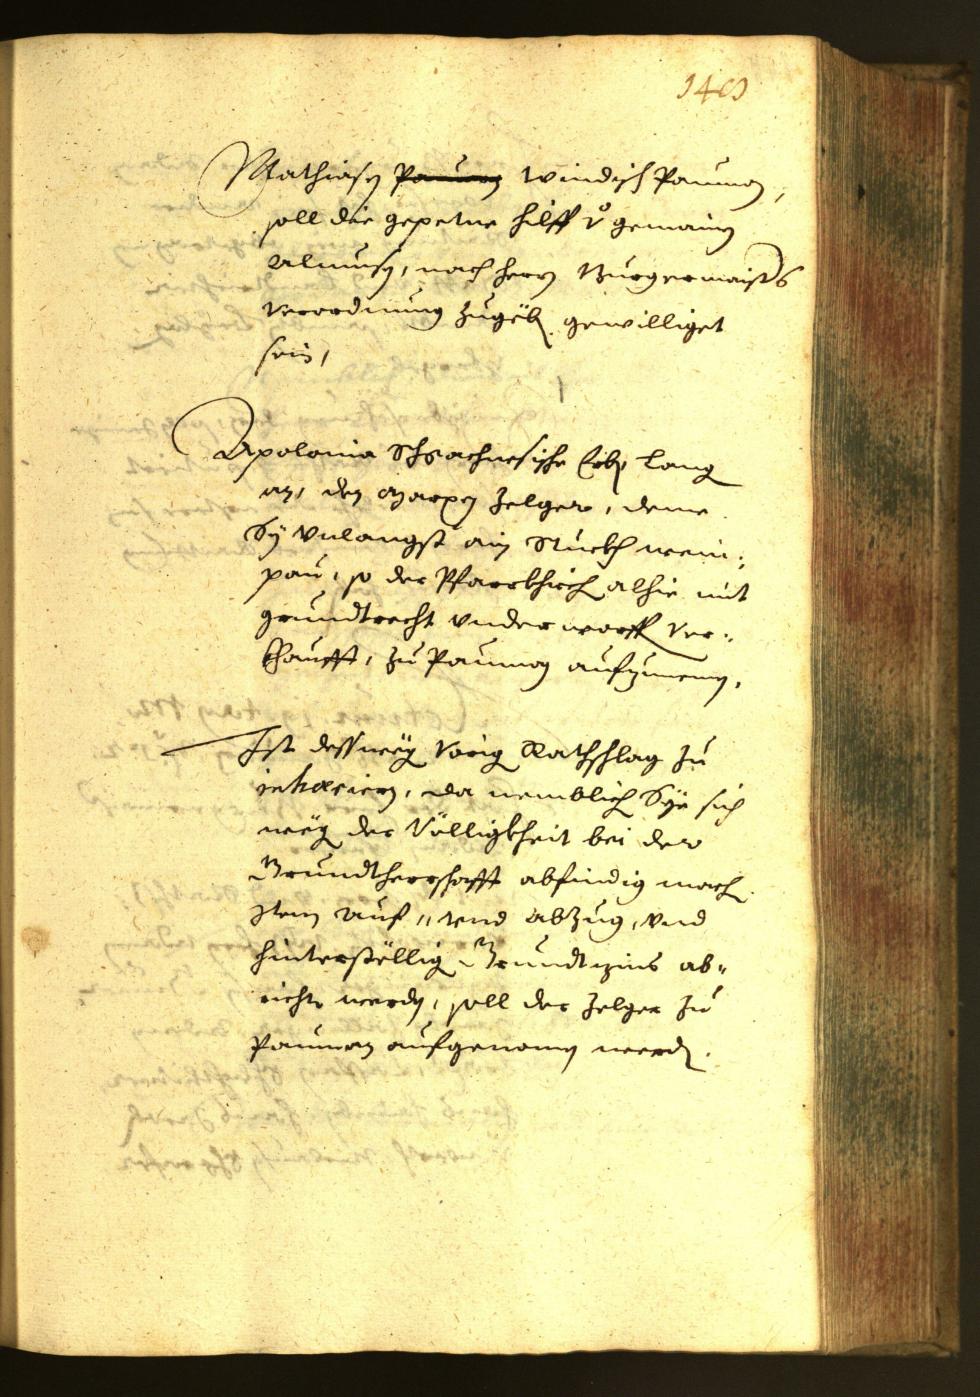 140
Mathiasn Pauman Windisch Pauman,
soll die gepetne hilff vo gemainen
Almusn, nach herrn Burgermaisters
verordnung zugeben gewilliget
sein,
Apolonia Schrachnesische Erben lang
an, den Marxen Zelger, deme
Sy vnlangst ain Stuckh wein¬
pau, so der Pfarrkhirch alhie mit
grundtrecht vnderworffen ver¬
khaufft, zu Pauman aufzunemen,
Ist desswegen vorig Rathschlag zu
inhaerieren, da nemblich Sye sich
weg der Völligkheit bei der
Grundtherrschafft abfindig mach
Item auf¬ vnd abzug, vnd
hinterstellig Grundtzins ab¬
richten werden, soll der Zelger zu
Pauman aufgenomen werden.